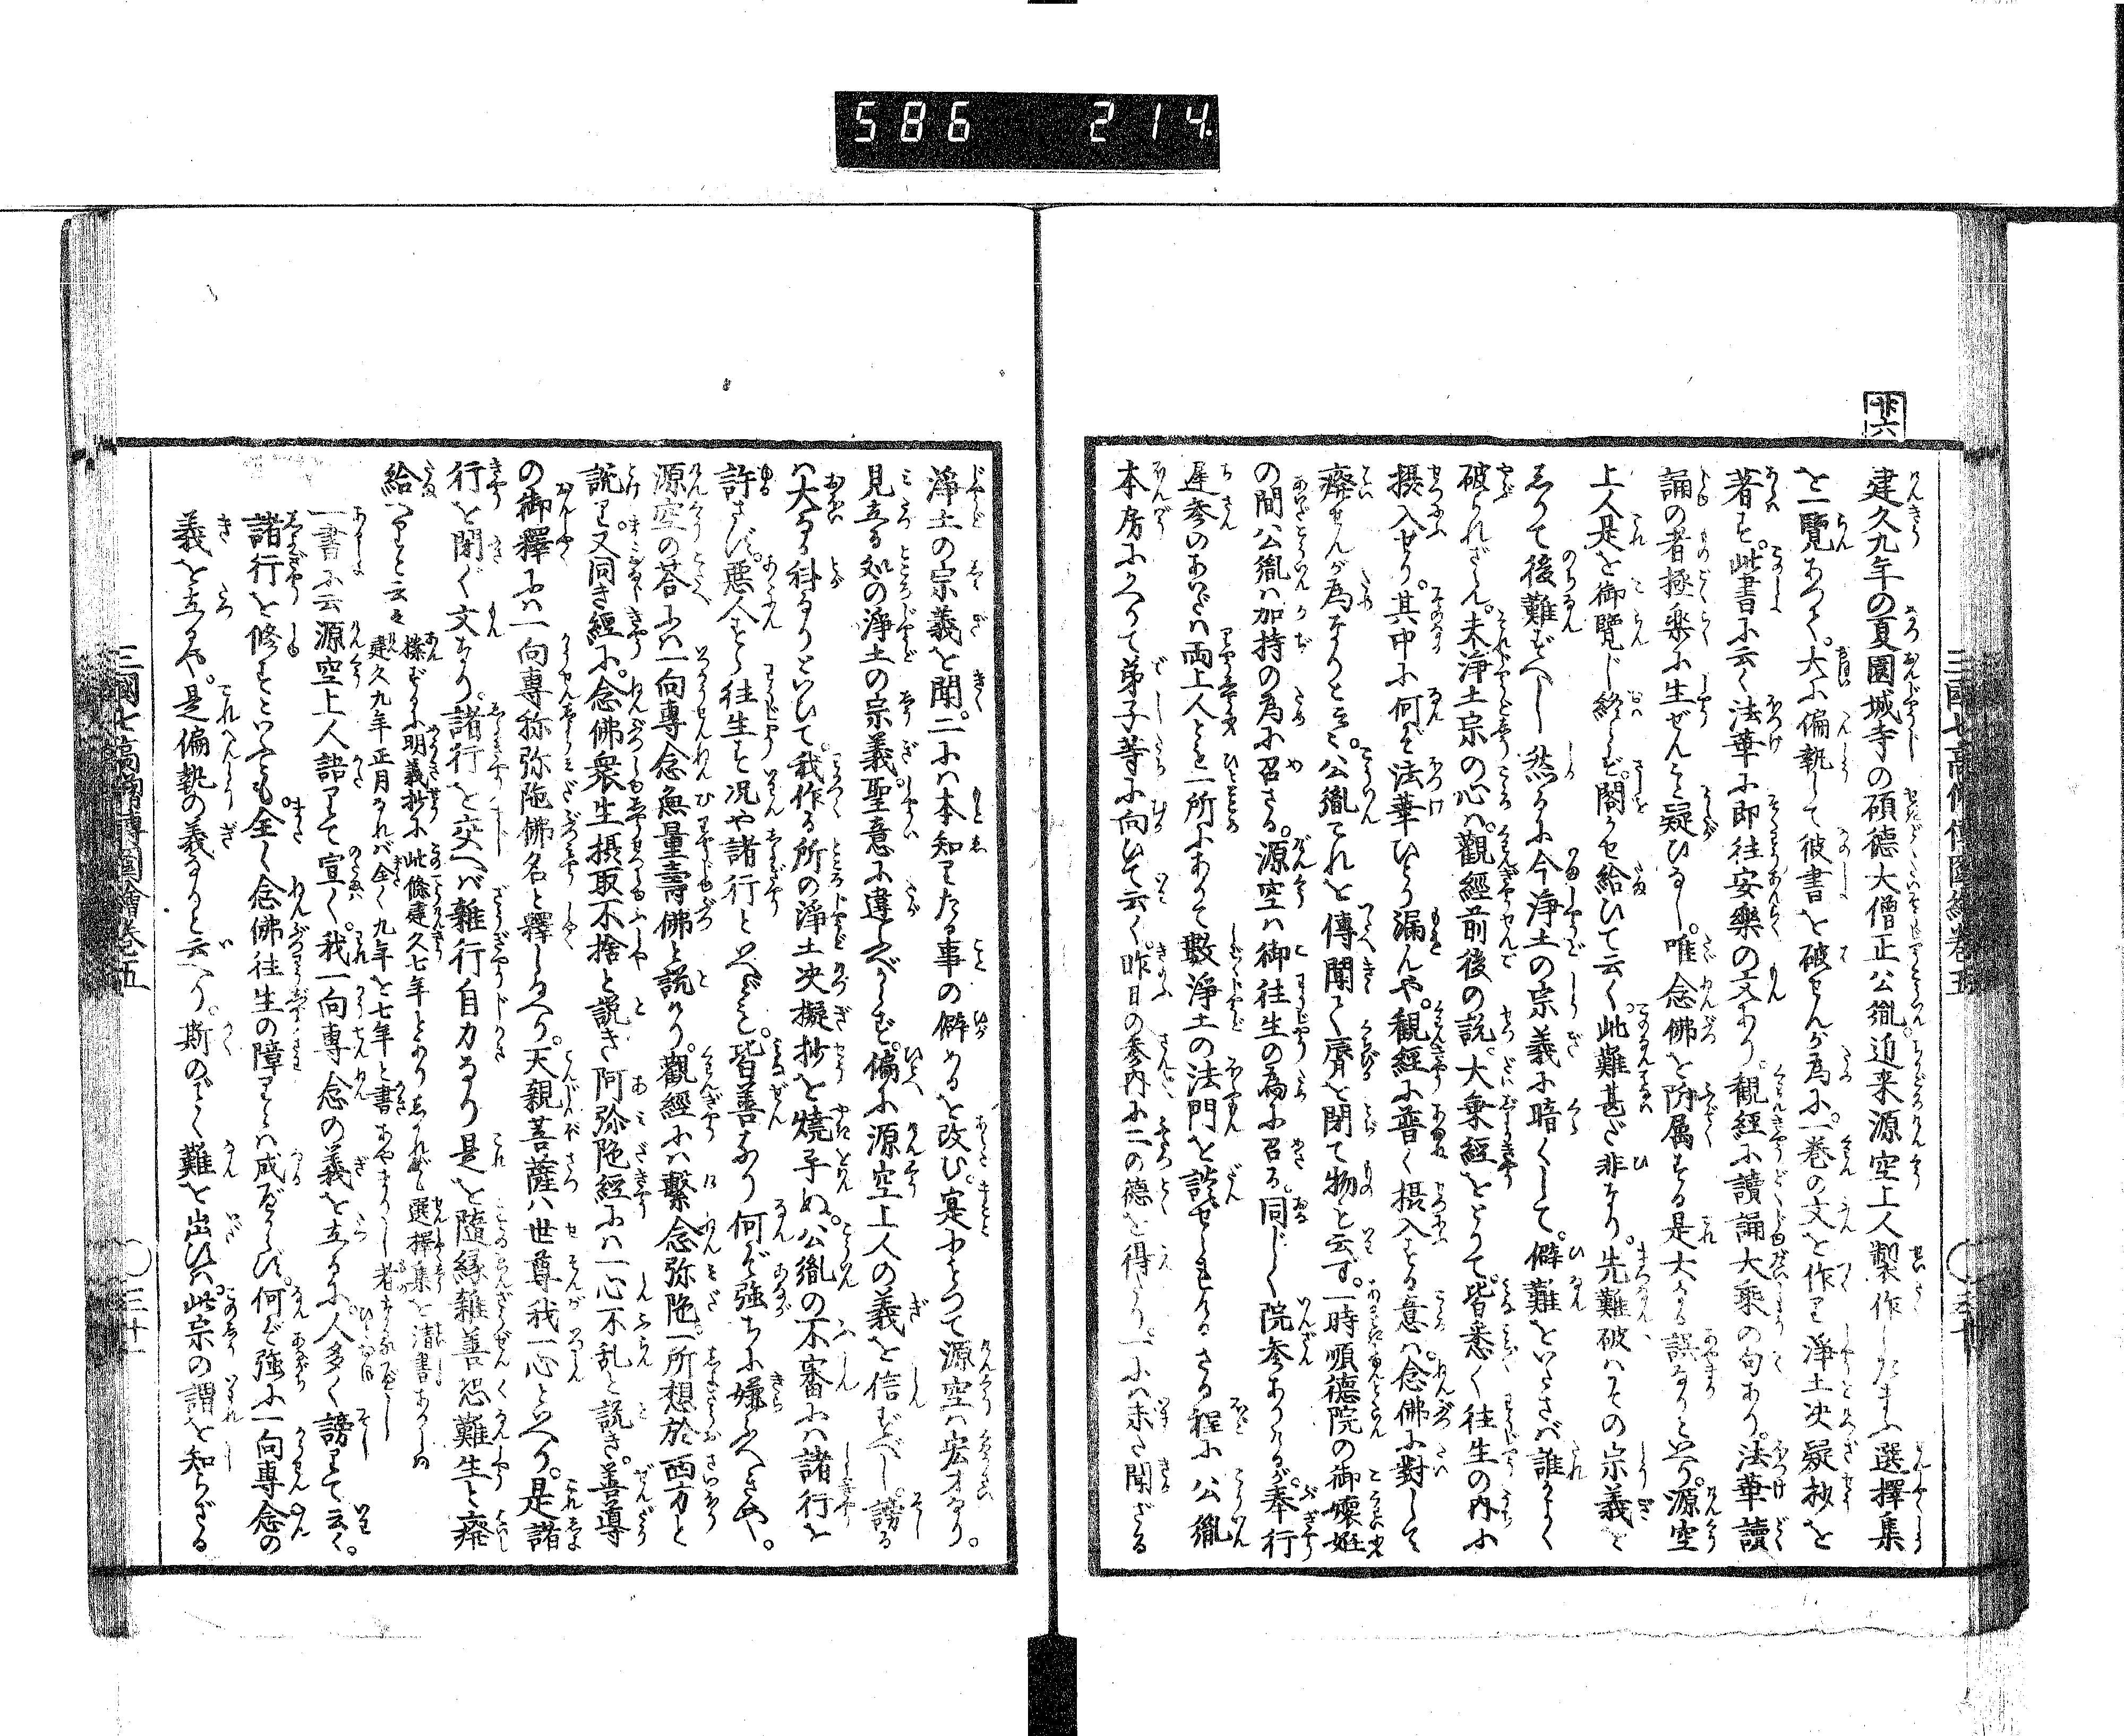 586 214.
三國七高僧傳圖繪卷五
廿六
建久九年の夏園城寺の碩德大僧正公胤。近来源空上人製作したまふ選擇集
を一覽あつて。大に偏執して彼書を破せんが為に。一巻の文を作り浄土决疑抄を
著す。此書に云く法華に即往安樂の文あり。観經に讀誦大乘の句あり。法華讀
誦の者極楽に生ぜんこと疑ひなし。唯念佛を附属する是大なる誤なりといへり。源空
上人是を御覽じ終らず。閣かせ給ひて云く。此難甚だ非なり。先難破はその宗義を
しりて後難ずべし然るに今浄土の宗義に暗くして。僻難をいたさバ誰かよく
破られざらん。夫浄土宗の心ハ。觀經前後の説。大乗經をとりて。皆悉く往生の内に
摂入せり。其中に何ぞ法華ひとり漏んや。観經に普く摂入する意ハ。念佛に對して
癈せんが為なりと云々。公胤これを傳聞て脣を閉て物を云ず。一時順德院の御懐妊
の間公胤ハ加持の為に召さる。源空ハ御往生の為に召る。同じく院参ありけるが。奉行
遅参のあいだハ両上人とも一所にありて數浄土の法門を談ぜしめらるさる程に公胤
本房にかへりて弟子等に向ひて云く。昨日の参内に二の德を得たり。一にハ未だ聞ざる
浄土の宗義を聞。二にハ本知りたる事の僻めるを改む。寔にもつて源空ハ宏才なり。
見立る処の浄土の宗義。聖意に違べからず。偏に源空上人の義を信ずべし。謗る
ハ大なる科なりといひて。我作る所の浄土决擬抄を燒捨ぬ。公胤の不審にハ諸行を
許さず。悪人すら往生す况や諸行といへども。皆善なり何ぞ強ちに嫌ふべきや。
源空の荅にハ一向専念無量壽佛と説り。觀經にハ繫念弥陀一所想於西方と
説り。又同き經に。念佛衆生摂取不捨と説き阿弥陀経にハ一心不乱と説き。善導
の御釋にハ一向專称弥陀佛名と釋し給へり。天親菩薩ハ世尊我一心といへり。是諸
行を閉ぐ文なり。諸行を交へバ雜行自力なり是を隨縁雜善恐難生と癈
給へりと云々
按ずるに明義抄に此條建久七年とありしかれども選擇集を清書ありしハ
建久九年正月なれバ全く九年を七年と書あやまりし者なるべし
一書に云源空上人語りて宣く。我一向專念の義を立るに。人多く謗りて云く。
諸行を修すといへども。全く念佛往生の障りとハ成べからず。何ぞ強に一向專念の
義を立るや。是偏執の義なりと云へり。斯のごとく難を出すハ。此宗の謂を知らざる
三國七高僧傳圖繪卷五
三十一